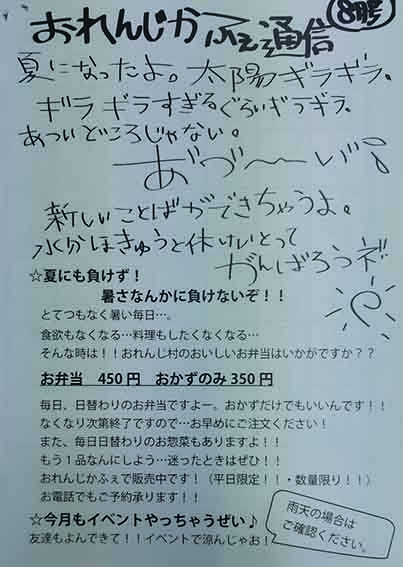 おれんじかふぇ通信
8月号
夏になったよ。太陽ギラギラ。
ギラギラすぎるぐらいギラギラ。
あついどころじゃない。
あ゛づ〜〜い゛
新しいことばができちゃうよ。
水分ほきゅうと休けいとって
がんばろうネ
☆夏にも負けず！
暑さなんかに負けないぞ！！
とてつもなく暑い毎日…。
食欲もなくなる…料理もしたくなくなる…
そんな時は！！おれんじ村のおいしいお弁当はいかがですか？？
お弁当　450円　おかずのみ350円
毎日、日替わりのお弁当ですよー。おかずだけでもいいんです！！
なくなり次第終了ですので…お早めにご注文ください！
また、毎日日替わりのお惣菜もありますよ！！
もう１品なんにしよう…迷ったときはぜひ！！
おれんじかふぇで販売中です！（平日限定！！・数量限り！！）
お電話でもご予約承ります！！
☆今月もイベントやっちゃうぜい♪
友達もよんできて！！イベントで涼んじゃお！
雨天の場合は
ご確認ください。